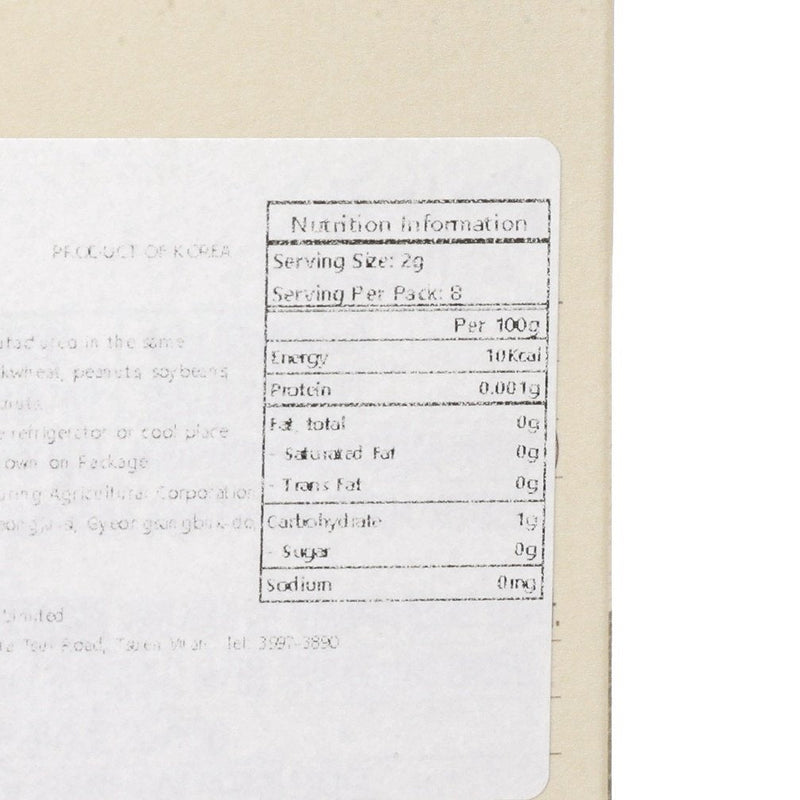 PRODUCT OF KOREA
in the same
kwheat, peanuts, soybeans
refrigerator or cool place
own on Package
uring Agricultural Corporation
Gyeongsangbuk-do,
Limited
Road, Tsuen Wan Tel: 3997-3890
Nutrition Information
Serving Size: 2g
Serving Per Pack: 8
Per 100g
Energy 10Kcal
Protein 0.001g
Fat, total 0g
- Saturated Fat 0g
- Trans Fat 0g
Carbohydrate 1g
- Sugar 0g
Sodium 0mg